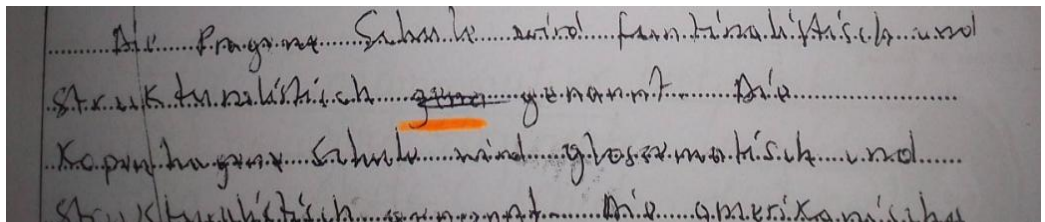 Die Pragene Schule wird funktinalistisch und
strukturalistich genannt Die
Kopenhagene Schule wird glossematisch und
strukturalistisch genannt Die amerikanische